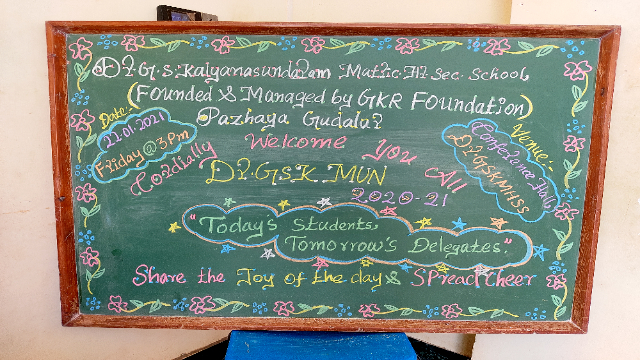 Dr.G.S.Kalyanasundaram Matric.Hr Sec. School,
(Founded & Managed by GKR Foundation)
Pazhaya Gudalar
Date:-
22.01.2021
Friday @ 3 Pm
Venue:-
Conference Hall,
Dr.GSKMHSS
Cordially Welcome You All
Dr.GSK MUN
2020-21
"Today's Students,
Tomorrow's Delegates."
Share the Joy of the day & Spread Cheer